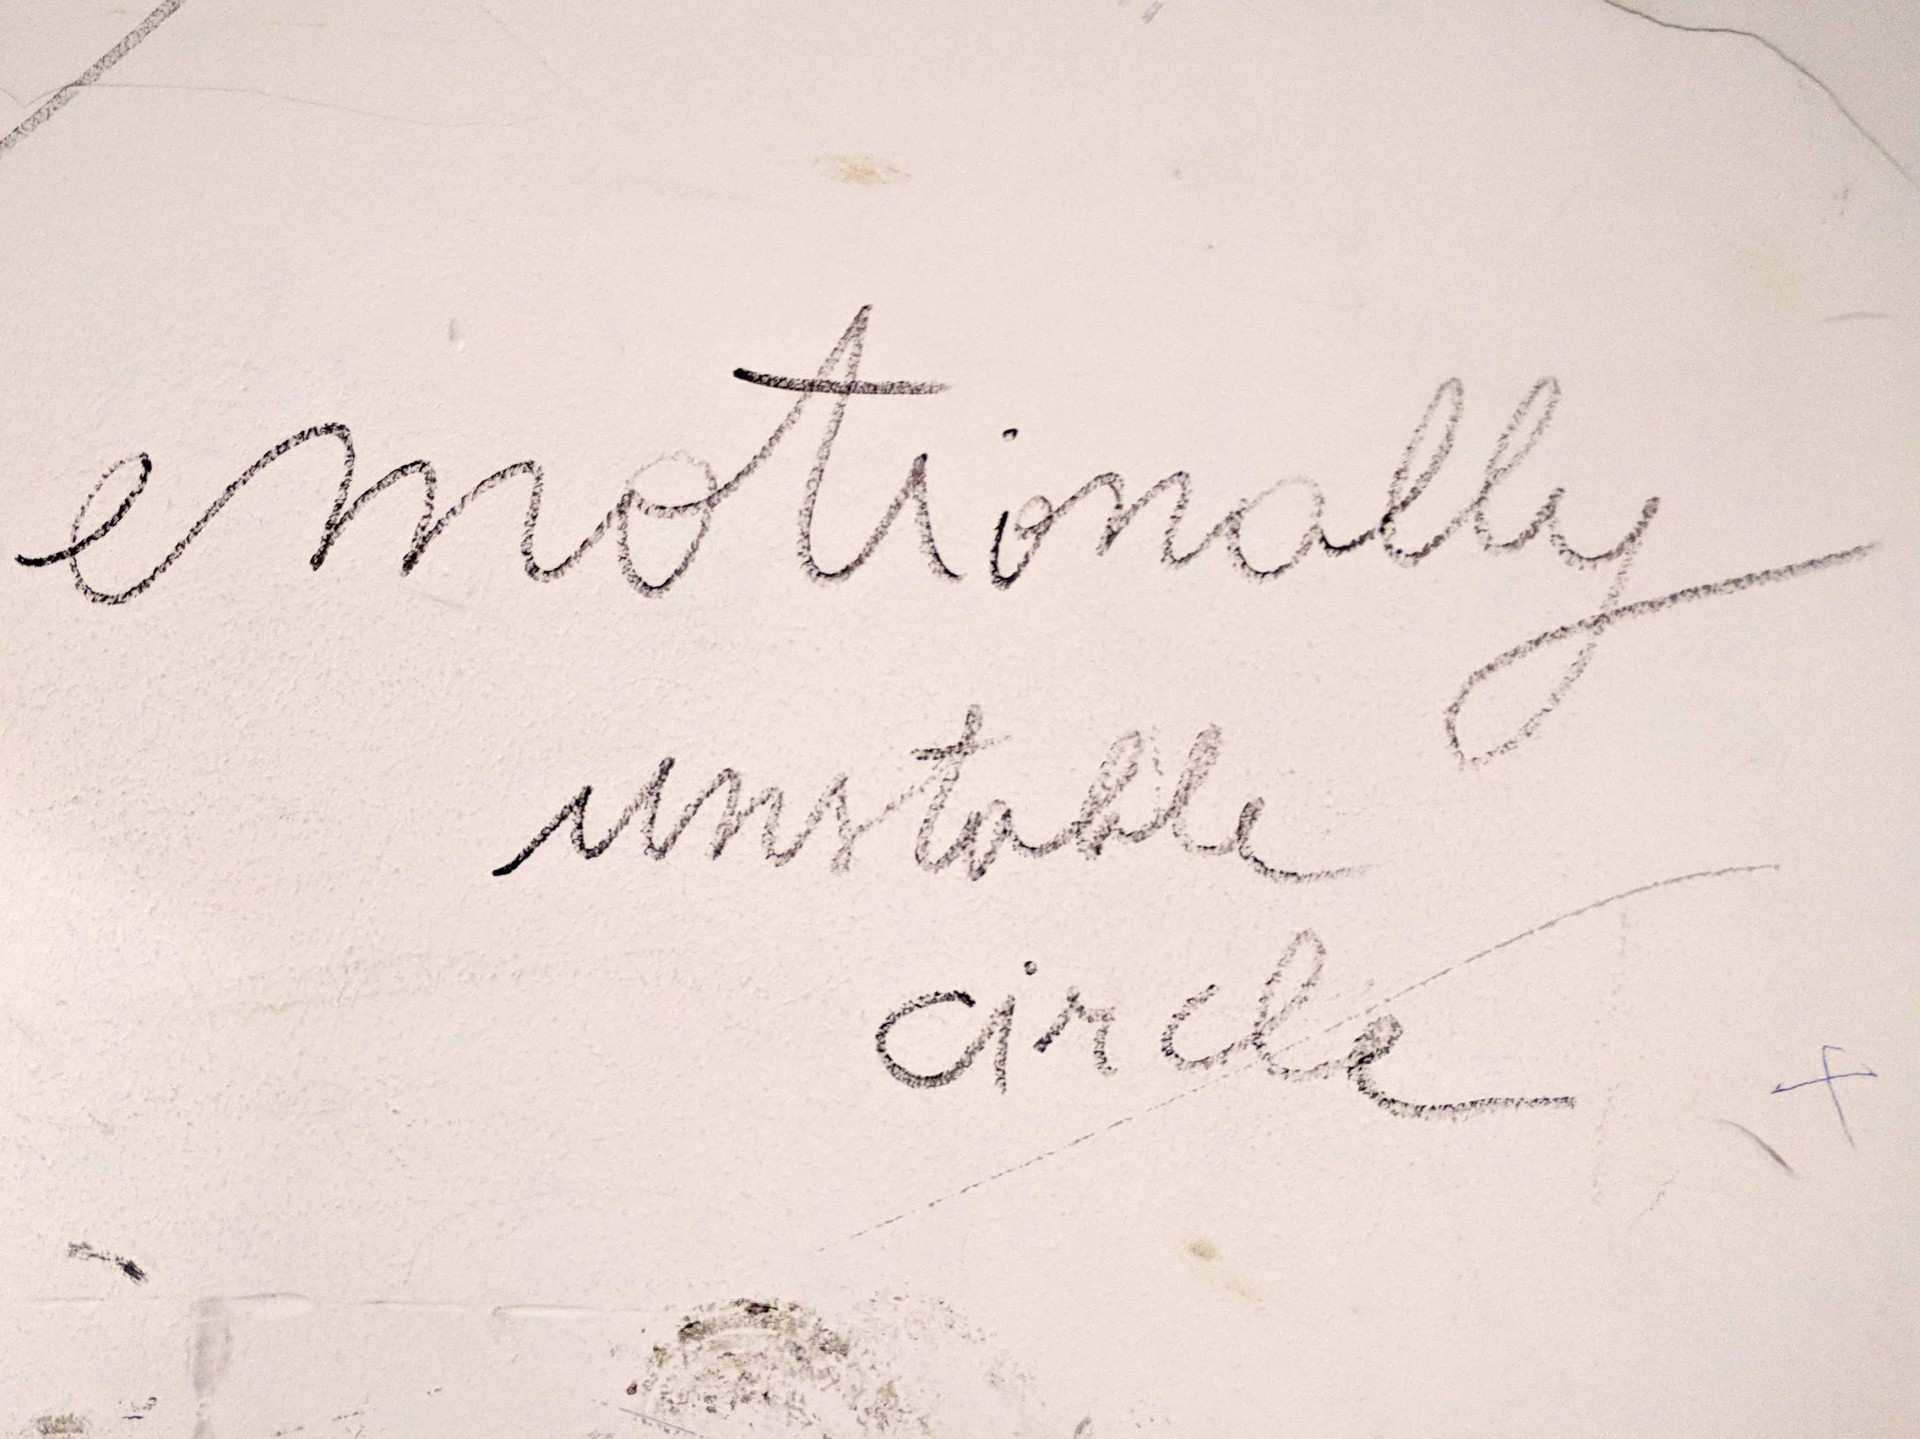 emotionally
unstable
circle